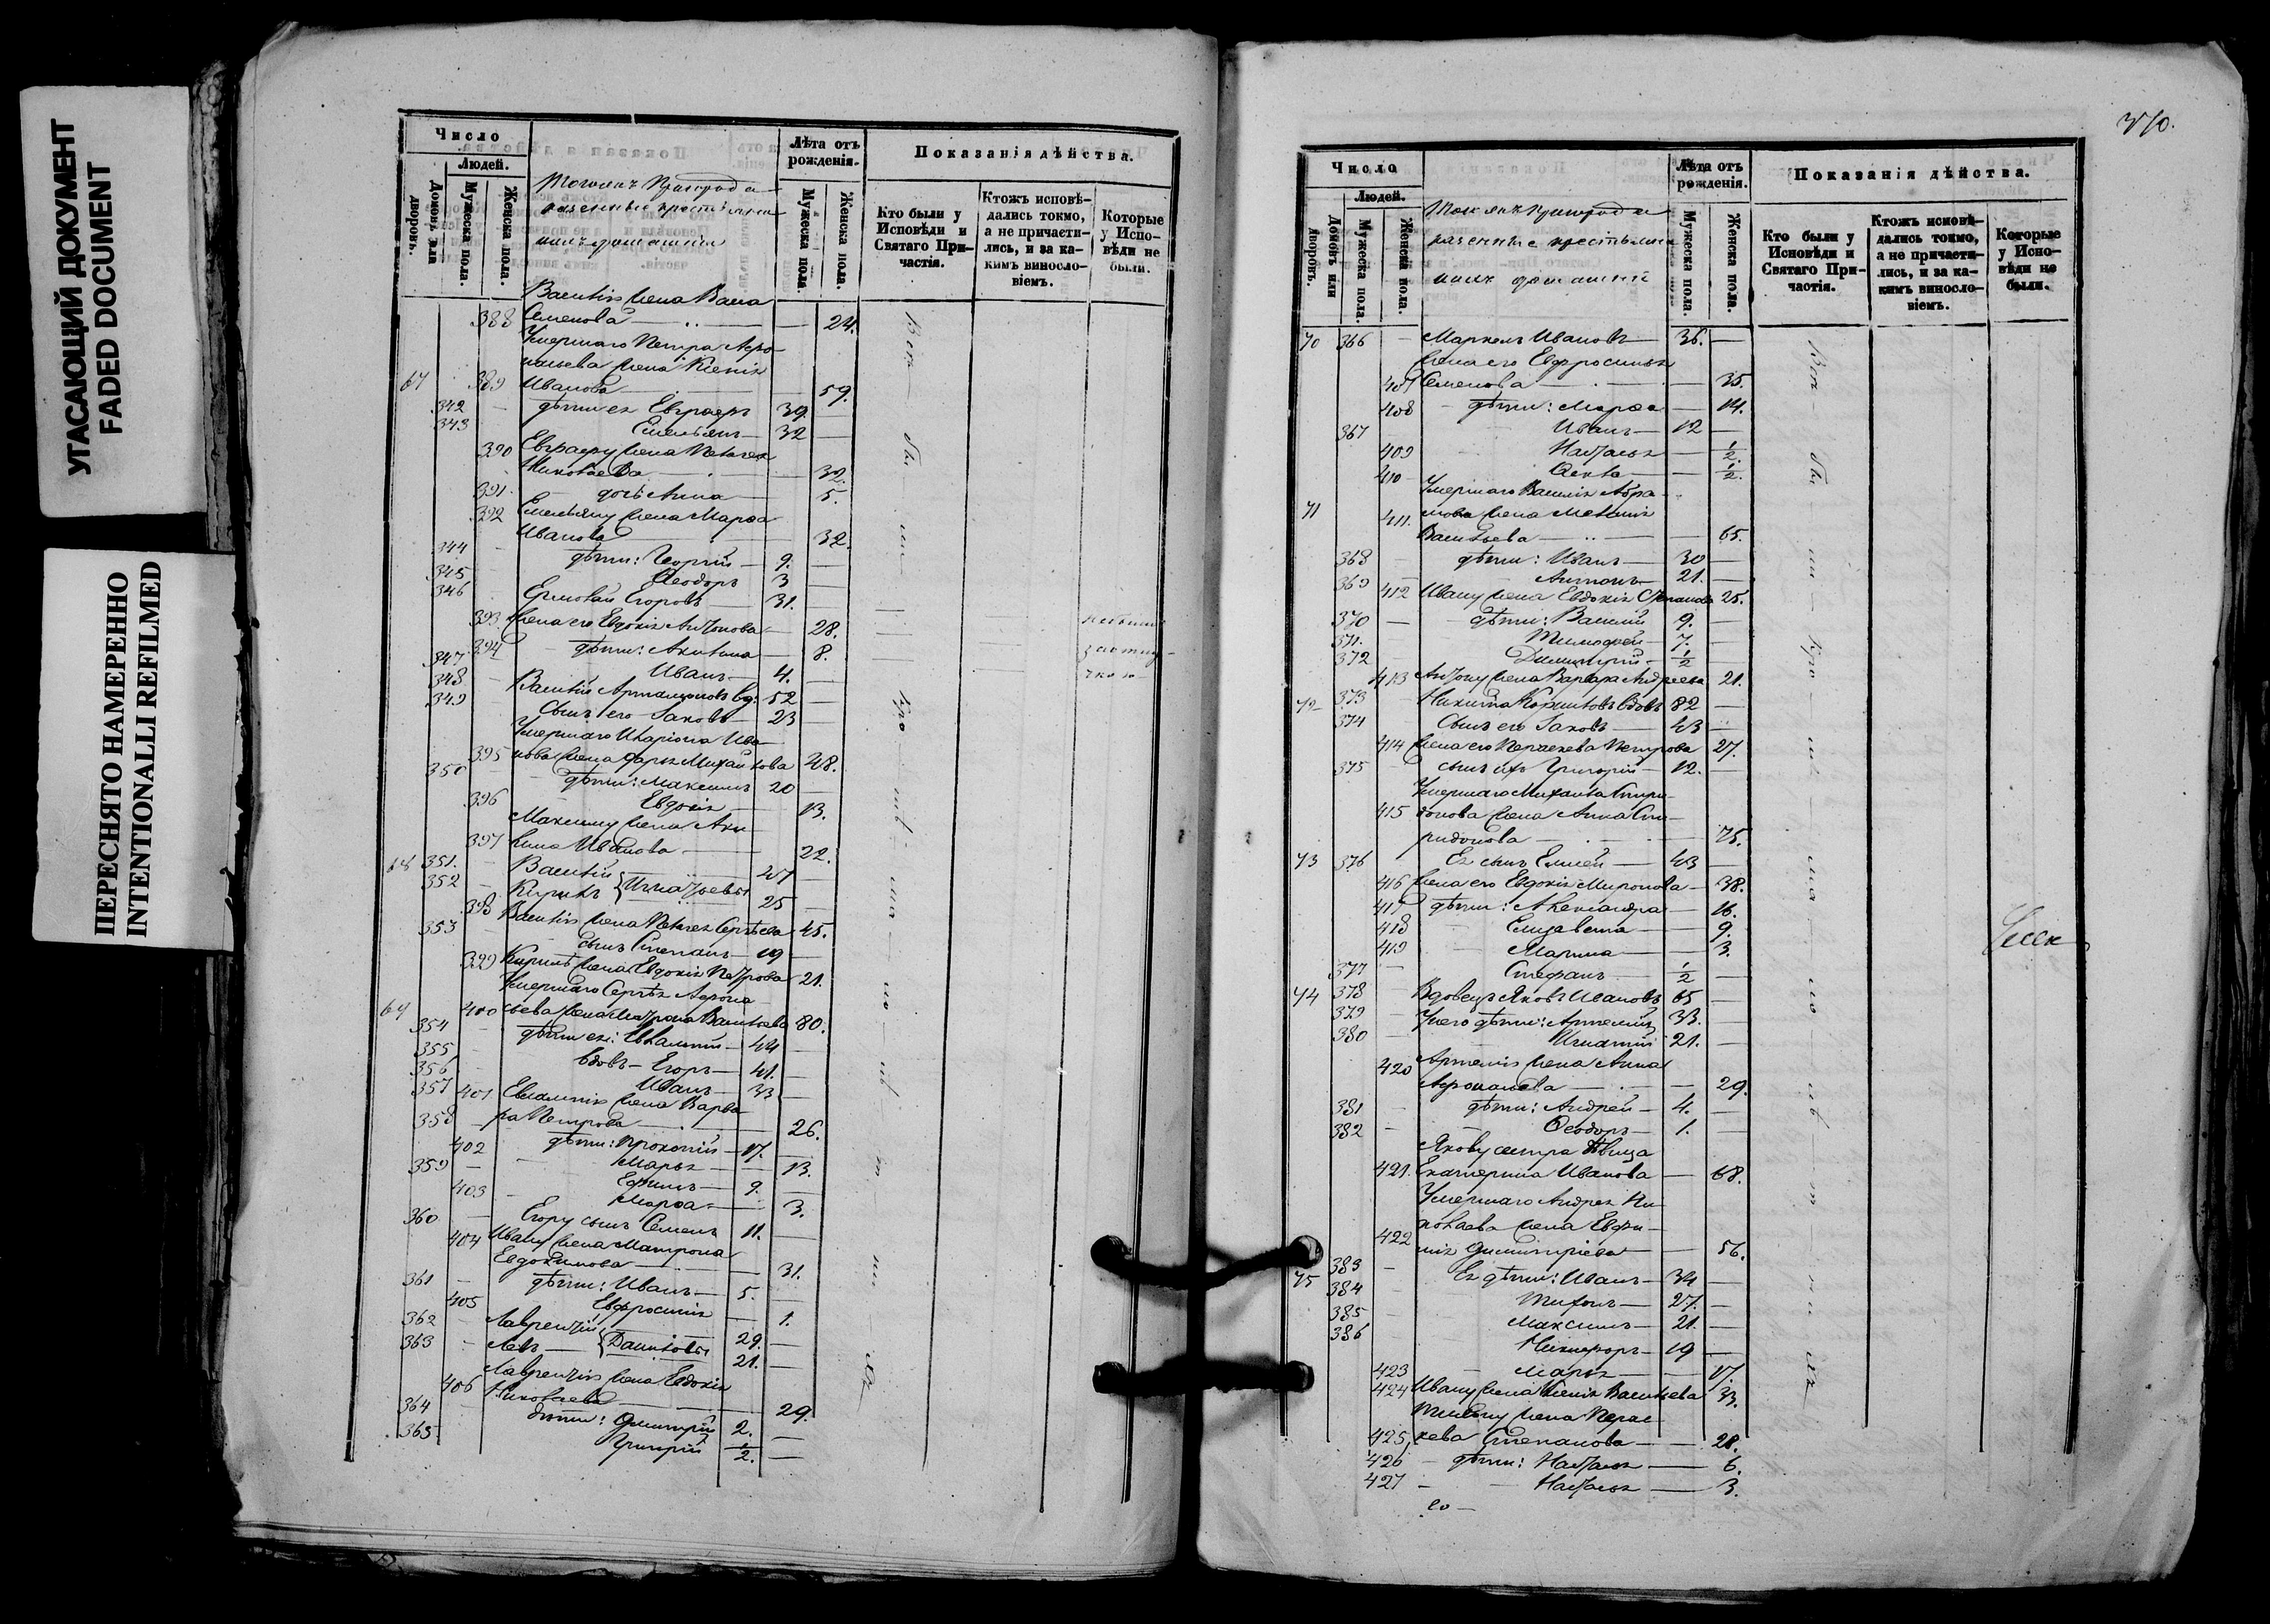 УГАСАЮЩИЙ ДОКУМЕНТ
FADED DOCUMENT
ПЕРЕСНЯТО НАМЕРЕННО
INTENTIONALLI REFILMED
Число
Людей.
Домовъ или дворовъ.
Мужеска пола.
Женска пола.
казенные крестьяне
и ихъ домашніе
Лѣта отъ рожденія.
Мужеска пола.
Женска пола.
Показанія дѣйства.
Кто были у Исповѣди и Святаго Причастія.
Ктожъ исповѣдались токмо, а не причастились, и за какимъ винословіемъ.
Которые у Исповѣди не были.
Василія жена Васса
388 Семенова 24.
Умершаго Петра Афо-
насьева жена Ксенія
67 389 Ивановa 59.
342 дѣти ея Евграфъ 39.
343 Емельянъ 32
390 Евграфу жена Пелагея
Николаева 32.
391 дочь Анна 5.
392 Емельяну жена Марѳа
Иванова 32.
344 дѣти: Георгій 9.
345 Ѳеодоръ 3
346 Ермолай Егоровъ 31.
393 Жена его Евдокія Антонова 28.
394 дѣти: Акилина 8.
347 Иванъ 4.
348 Василій Артамоновъ вд. 52
349 Сынъ его Іаковъ 23
Умершаго Иларіона Ива-
395 нова жена Дарья Михайлова 48.
350 дѣти: Максимъ 20
396 Евдокія 13.
Максиму жена Аку-
397 лина Иванова 22.
68 351. Василій 47
352 Кирилъ } Игнатьевы 25
398 Василія жена Пелагея Сергѣева 45.
353 сынъ Степанъ 19
399 Кирилѣ жена Евдокія Петрова 21.
Умершаго Сергѣя Афона-
69 400 сьева жена Матрона Васильева 80.
354 дѣти ея: Евлампій 44
355 вдовъ - Егоръ 41.
356 Иванъ 33
357 401 Евлампія жена Варва-
ра Петрова 26.
358 дѣти: Прокопій 17.
402 Марья 13.
359 Ефимъ 9.
403 Марѳа 3.
360 Егору сынъ Семенъ 11.
404 Ивану жена Матрона
Евдокимова 31.
361 дѣти: Иванъ 5.
405 Евфросинія 1.
362 Лаврентій 29.
363 Левъ } Даниловы 21.
Лаврентія жена Евдокія
406 Николаева 29.
364 дѣти: Димитрій 2.
365 Григорій 1/2.
Число
Людей.
Домовъ или дворовъ.
Мужеска пола.
Женска пола.
казенные крестьяне
и ихъ домашніе
Лѣта отъ рожденія.
Мужеска пола.
Женска пола.
Показанія дѣйства.
Кто были у Исповѣди и Святаго Причастія.
Ктожъ исповѣдались токмо, а не причастились, и за какимъ винословіемъ.
Которые у Исповѣди не были.
70 366 Маркелъ Ивановъ 36.
Жена его Евфросинья
407 Семенова 35.
408 дѣти: Марѳа 14.
367 Иванъ 12
409 Наталья 1/2.
410 Ѳекла 1/2.
Умершаго Василія Абра-
71 411. мова жена Меланія
Васильева 65.
368 дѣти: Иванъ 30
369 Антонъ 21.
412 Ивану жена Евдокія Степанова 25.
370 дѣти: Василій 9.
371. Тимофей 7.
372 Димитрій 1/2
413 Антону жена Варвара Андреева 21.
72 373 Никита Корниловъ вдовъ 82
374 Сынъ его Іаковъ 43
414 Жена его Параскева Петрова 27.
375 сынъ ихъ Григорій 12.
Умершаго Михаила Спири-
415 донова жена Анна Спи-
ридонова 75.
73 376 Ея сынъ Елисей 43
416 Жена его Евдокія Миронова 38.
417 дѣти: Александра 16.
418 Елизавета 9.
419 Марина 3.
377 Стефанъ 1/2
74 378 Вдовецъ Яковъ Ивановъ 65
379 У него дѣти: Артемій 33.
380 Игнатій 21.
420 Артемія жена Анна
Афонасьева 29.
381 дѣти: Андрей 4.
382 Ѳеодоръ 1.
Якову сестра дѣвица
421. Екатерина Иванова 68.
Умершаго Андрея Ни-
колаева жена Евфи-
422 мія Димитріева 56.
75 383 Ея дѣти: Иванъ 34
384 Тихонъ 27.
385 Максимъ 21.
386 Никифоръ 19
423 Марья 17.
424 Ивану жена Ксенія Васильева 33.
Тихону жена Парас-
425 кева Степанова 28.
426 дѣти: Наталья 6.
427 Наталья 3.